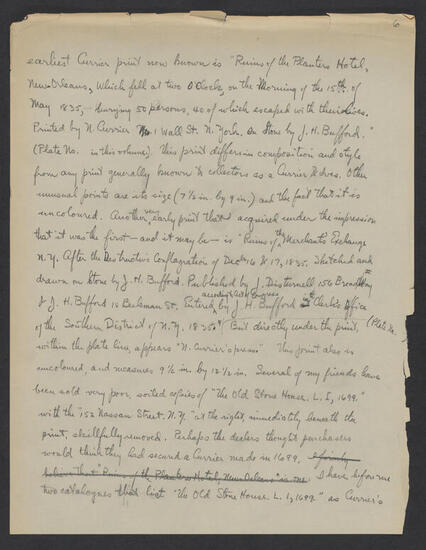 6
earliest Currier print now known is "Ruins of the Planters Hotel,
New Orleans, which fell at two O'Clock, on the Morning of the 15th of
May 1835, — burying 50 persons, 40 of which escaped with their lives.
Printed by N. Currier No. 1 Wall St. N. York. On Stone by J. H. Bufford."
(Plate No. in this volume). This print differs in composition and style
from any print generally known to collectors as a Currier & Ives. Other
unusual points are its size (7½ in. by 9 in.) and the fact that it is
uncoloured. Another very early print that acquired under the impression
that it was the first — and it may be — is "Ruins of the Merchants Exchange
N.Y. After the Destructive Conflagration of Decbr 16 & 17, 1835. Sketched and
drawn on Stone by J. H. Bufford. Published by J. Disturnell 156 Broadway
& J. H. Bufford 10 Beekman St. Entered according to Act of Congress by J H Bufford in Clerk's Office
of the Southern District of N.Y. 1835" But directly under the print, (Plate No.
within the plate line, appears "N. Currier's press" This print also is
uncoloured, and measures 9½ in. by 12½ in. Several of my friends have
been sold very poor, soiled copies of "The Old Stone House. L. I, 1699."
with the "152 Nassau Street. N.Y." at the right, immediately beneath the
print, skillfully removed. Perhaps the dealers thought purchasers
would think they had secured a Currier made in 1699. I firmly
believe that "Ruins of the Planters Hotel, New Orleans" is one I have before me
two catalogues that list "The Old Stone House. L. I, 1699." as Currier's